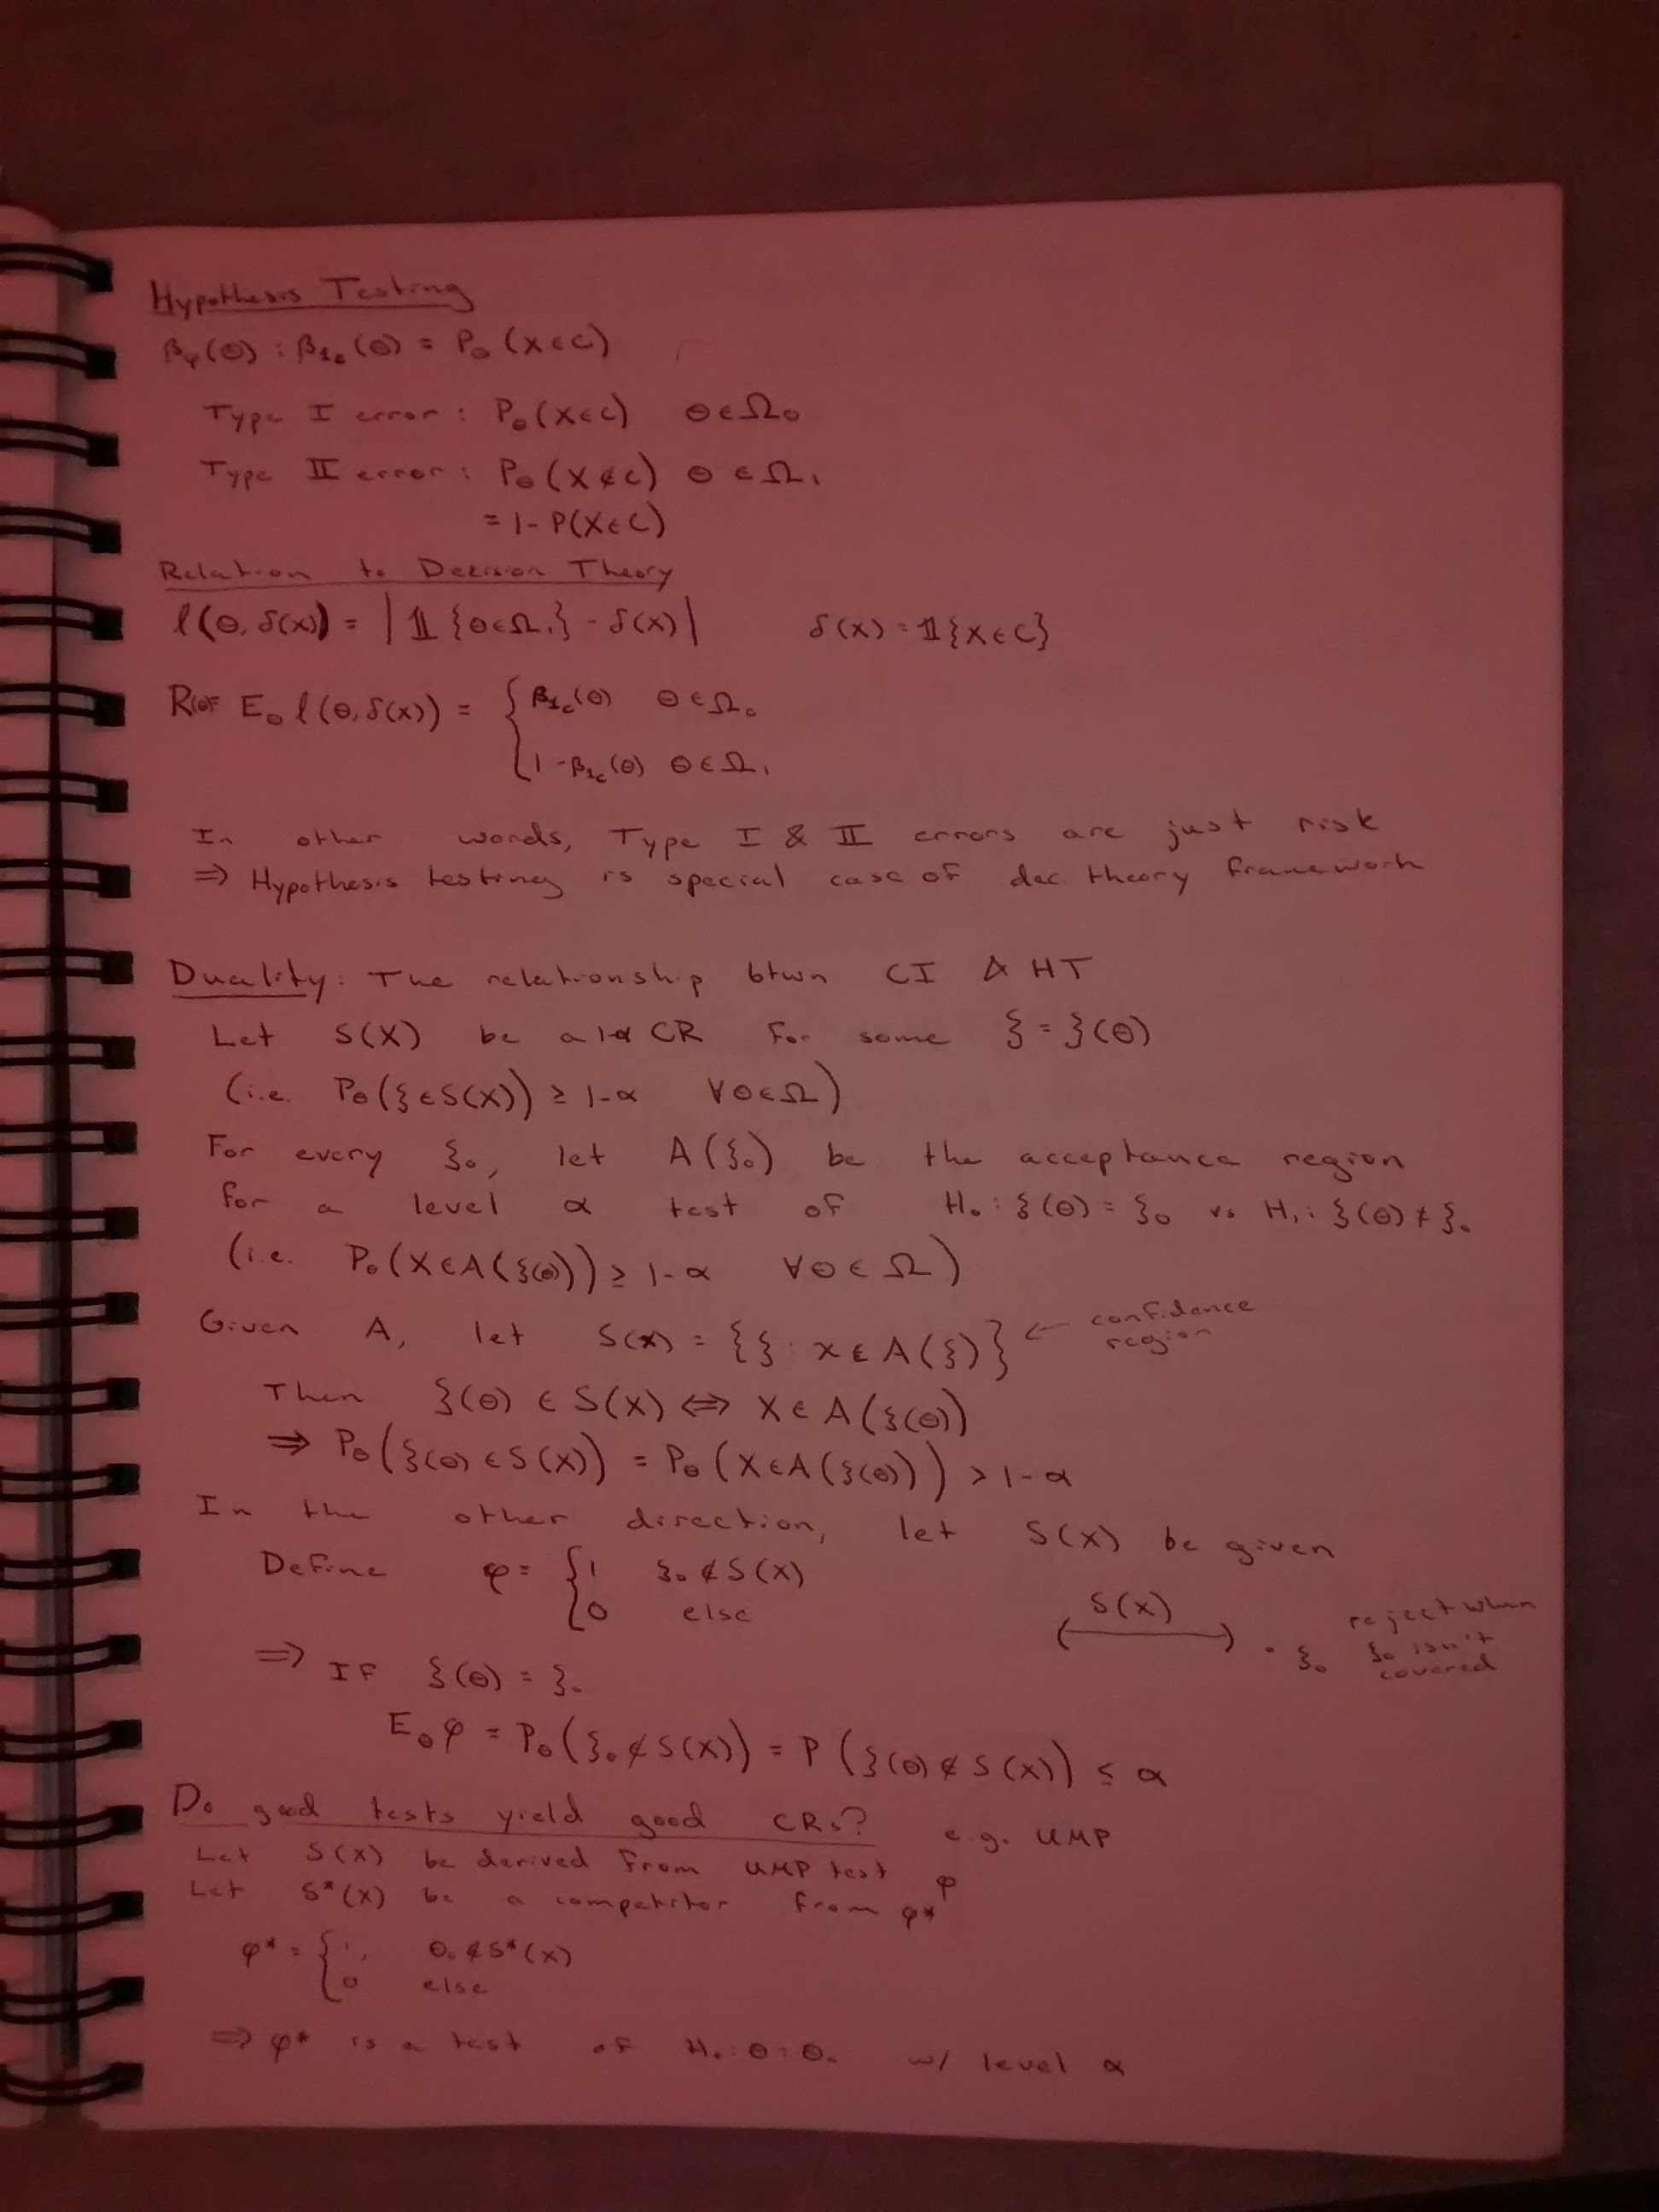 Hypothesis Testing
β_φ(θ) : β_{1_c}(θ) = P_θ(X∈C)
Type I error : P_θ(X∈C) θ∈Ω₀
Type II error : P_θ(X∉C) θ∈Ω₁
= 1 - P(X∈C)
Relation to Decision Theory
ℓ(θ, δ(x)) = |𝟙{θ∈Ω₁} - δ(x)| δ(x) = 𝟙{X∈C}
R(θ) = E_θ ℓ(θ, δ(x)) = { β_{1_c}(θ) θ∈Ω₀
1 - β_{1_c}(θ) θ∈Ω₁
In other words, Type I & II errors are just risk
⇒ Hypothesis testing is special case of dec. theory framework
Duality: The relationship btwn CI & HT
Let S(X) be a 1-α CR for some ξ = ξ(θ)
(i.e. P_θ(ξ∈S(X)) ≥ 1-α ∀θ∈Ω)
For every ξ₀, let A(ξ₀) be the acceptance region
for a level α test of H₀: ξ(θ) = ξ₀ vs H₁: ξ(θ) ≠ ξ₀
(i.e. P_θ(X∈A(ξ(θ))) ≥ 1-α ∀θ∈Ω)
Given A, let S(x) = {ξ : x∈A(ξ)} ← confidence
region
Then ξ(θ) ∈ S(X) ⇔ X∈A(ξ(θ))
⇒ P_θ(ξ(θ)∈S(X)) = P_θ(X∈A(ξ(θ))) > 1-α
In the other direction, let S(X) be given
Define φ = { 1 ξ₀∉S(X)
0 else
S(X)
( ⟷ ) · ξ₀
reject when
ξ₀ isn't
covered
⇒ If ξ(θ) = ξ₀
E_θ φ = P_θ(ξ₀∉S(X)) = P(ξ(θ)∉S(X)) ≤ α
Do good tests yield good CRs? e.g. UMP
Let S(X) be derived from UMP test φ
Let S*(X) be a competitor from φ*
φ* = { 1, θ₀∉S*(X)
0 else
⇒ φ* is a test of H₀: θ = θ₀ w/ level α